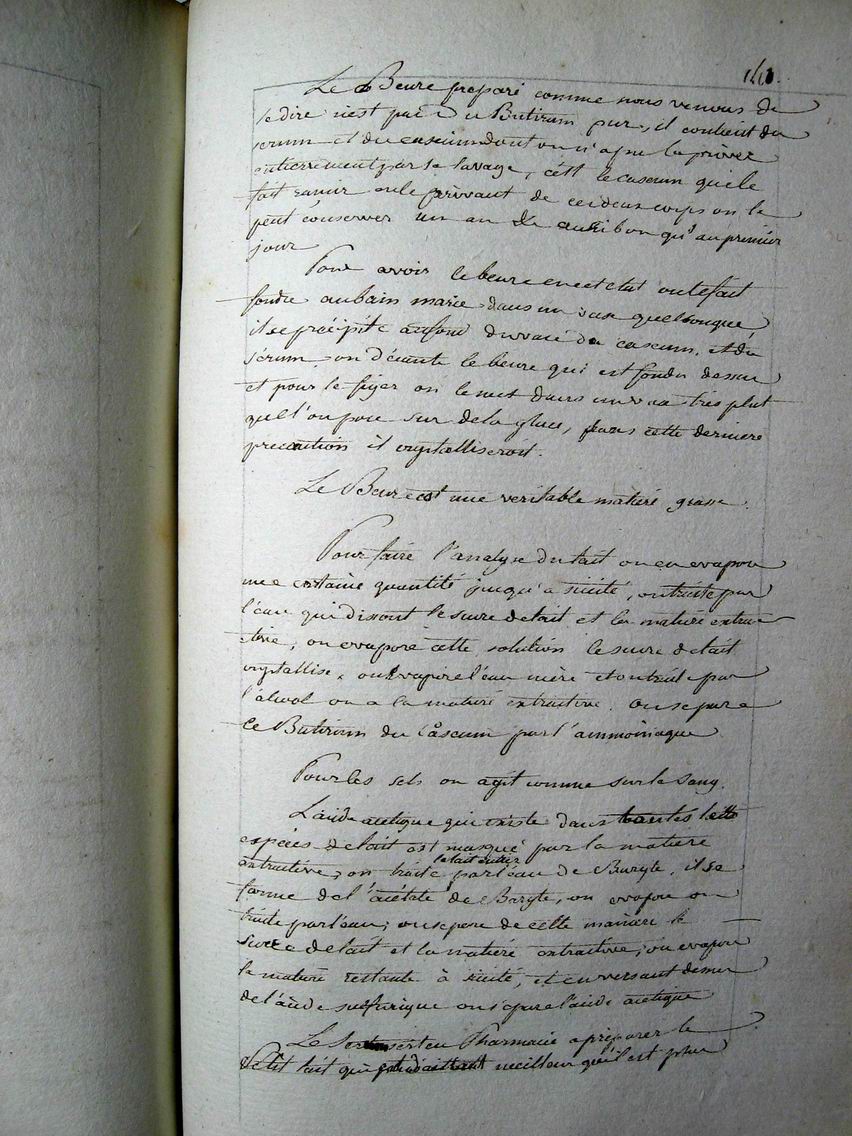 Le Beure preparé comme nous venons de
le dire n'est pas du Butirum pur, il contient du
serum et du caseum dont on n'a pu la priver
entierrement par le lavage, c'est le caseum qui le
fait rancir en le privant de ces deux corps on le
peut conserver un an aussi bon qu'au premier
jour
Pour avoir le beure en cet etat on le fait
fondre au bain marie dans un vase quelconque,
il se précipite au fond du vase du caseum, et du
sérum, on décante le beure qui est fondu dessus
et pour le figer on le met dans un vase tres plat
que l'on pose sur de la glace, sans cette derniere
precaution il crystalliseroit.
Le Beure est une veritable matiere grasse.
Pour faire l'analyse du lait on en evapore
une certaine quantité jusqu'a siccité, on traite par
l'eau qui dissout le sucre de lait et la matiere extrac
tive, on evapore cette solution le sucre de lait
crystallise, on evapore l'eau mère et on traite par
l'alcool on a la matiere extractive. on separe
le Butirum du Caseum par l'ammoniaque
Pour les sels on agit comme sur le sang.
L'acide acetique qui existe dans toutes
especes de lait est masqué par la matiere
extractive, on traite le lait entier par l'eau de Baryte, il se
forme de l'acétate de Baryte, on evapore on
traite par l'eau, on separe de cette maniere le
sucre de lait et la matiere extractive, on evapore
la matiere restante à siccité, et en versant dessus
de l'acide sulfurique on separe l'acide acetique
Le sert en Pharmacie a preparer le
Petit lait qui meilleur qu'il est plus